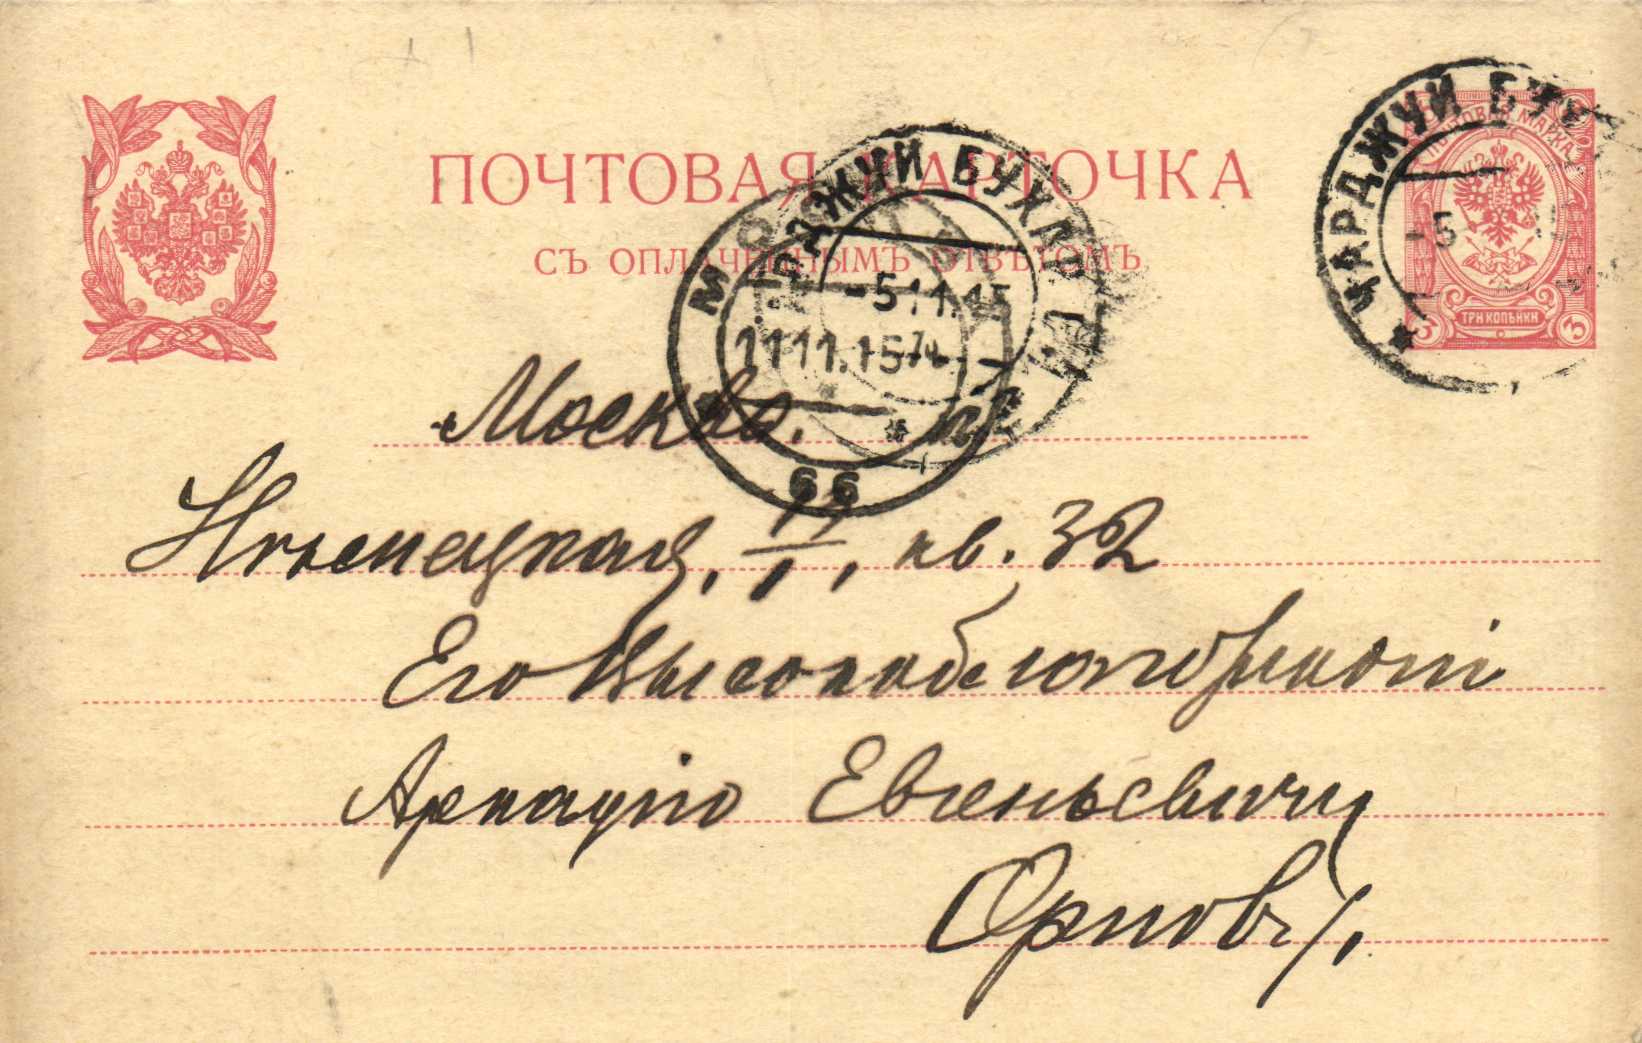 ПОЧТОВАЯ КАРТОЧКА
СЪ ОПЛАЧЕННЫМЪ ОТВѢТОМЪ
ПОЧТОВАЯ МАРКА
ТРИ КОПѢЙКИ
3 3
ЧАРДЖУЙ БУХ
-5
ЧАРДЖУЙ БУХ
-5 11.15
МОСКВА
11 11.15
66
Москва.
Нѣмецкая, кв. 32
Его Высокоблагородію
Аркадію Евгеньевичу
Орлову.